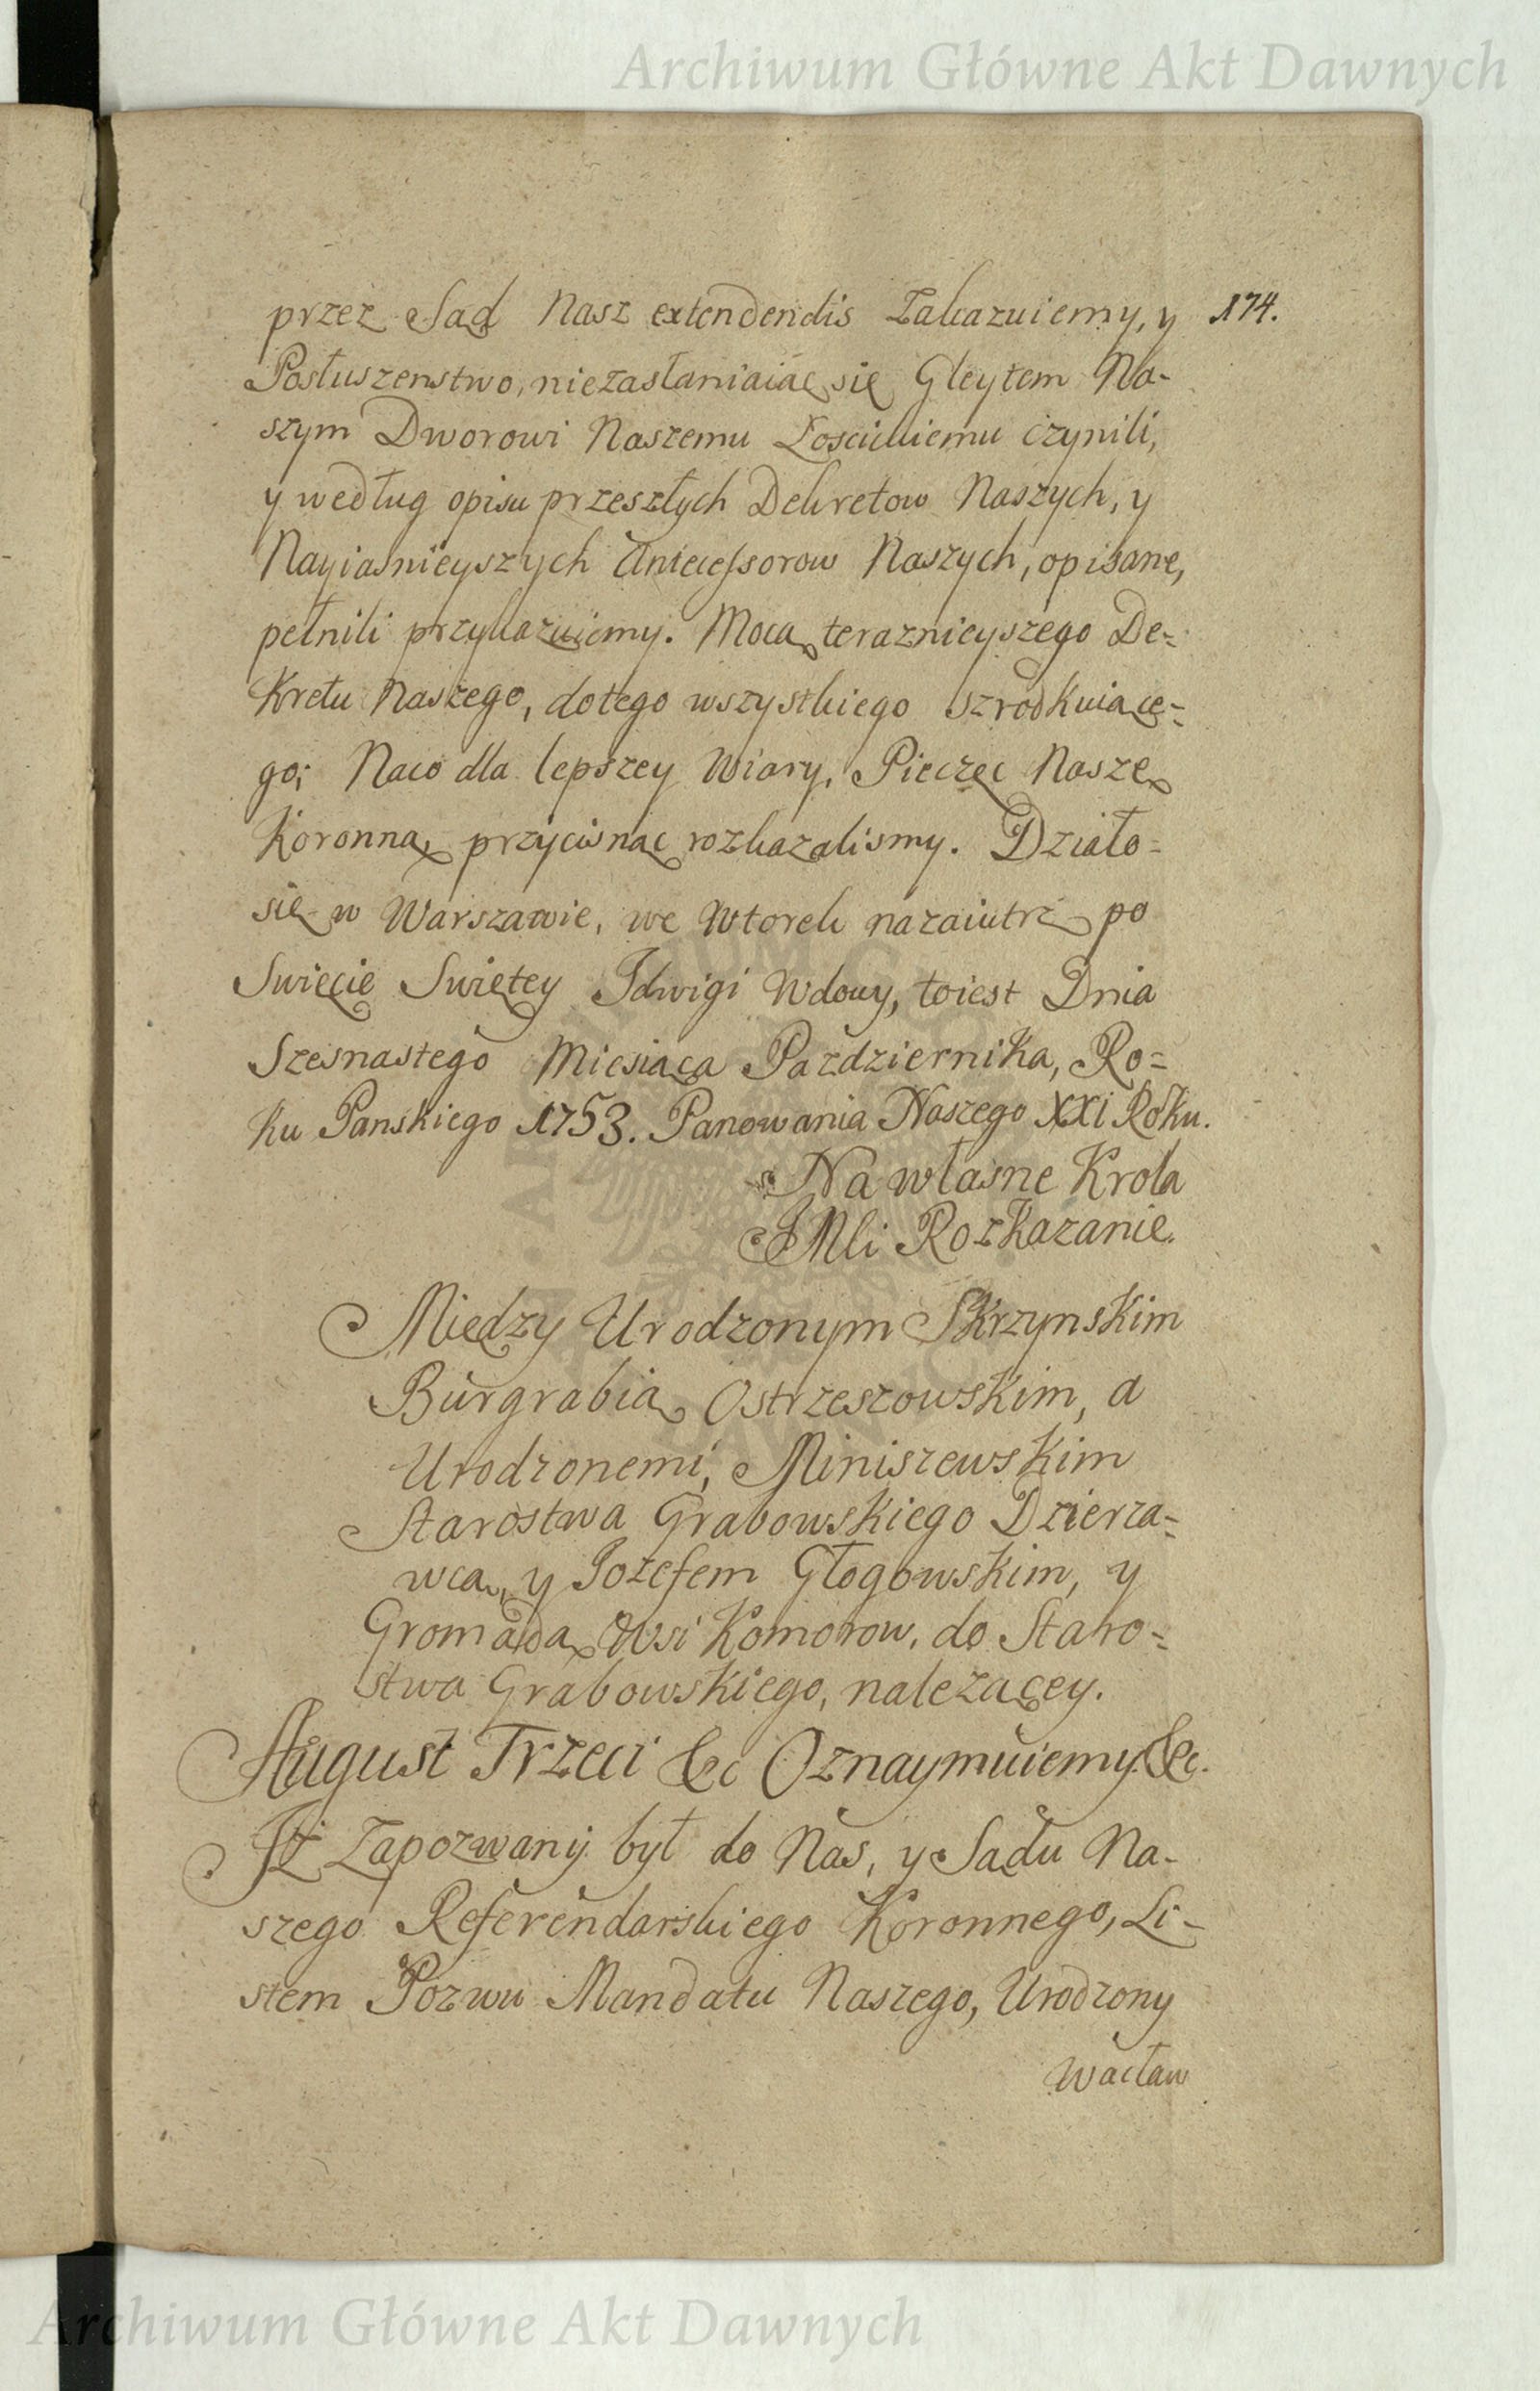 Archiwum Główne Akt Dawnych
przez Sąd Nasz extendendis Zakazuiemy, y 174.
Posłuszenstwo, niezasłaniaiąc się Gleytem Na-
szym Dworowi Naszemu Łosickiemu czynili,
y według opisu przeszłych Dekretow Naszych, y
Nayiasnieyszych Antecessorow Naszych, opisane,
pełnili przykazuiemy. Mocą teraznieyszego De=
Kretu Naszego, dotego wszystkiego szrodkuiące=
go; Naco dla lepszey Wiary, Pieczęc Naszę
Koronną przycisnąc rozkazalismy. Działo=
się w Warszawie, we Wtorek nazaiutrz po
Swięcie Swiętey Jdwigi Wdowy, toiest Dnia
Szesnastego Miesiąca Pazdziernika, Ro=
ku Panskiego 1753. Panowania Naszego XXI Roku.
Na własne Krola
JMci Rozkazanie.
Między Urodzonym Skrzynskim
Burgrabią Ostrzeszowskim, a
Urodzonemi, Miniszewskim
Starostwa Grabowskiego Dzierza=
wcą, y Jozefem Głogowskim, y
Gromadą Wsi Komorow, do Staro=
stwa Grabowskiego, nalezącey.
August Trzeci &c Oznaymuiemy &c.
Jż Zapozwany był do Nas, y Sądu Na-
szego Referendarskiego Koronnego, Li-
stem Pozwu Mandatu Naszego, Urodzony
Wacław
Archiwum Główne Akt Dawnych